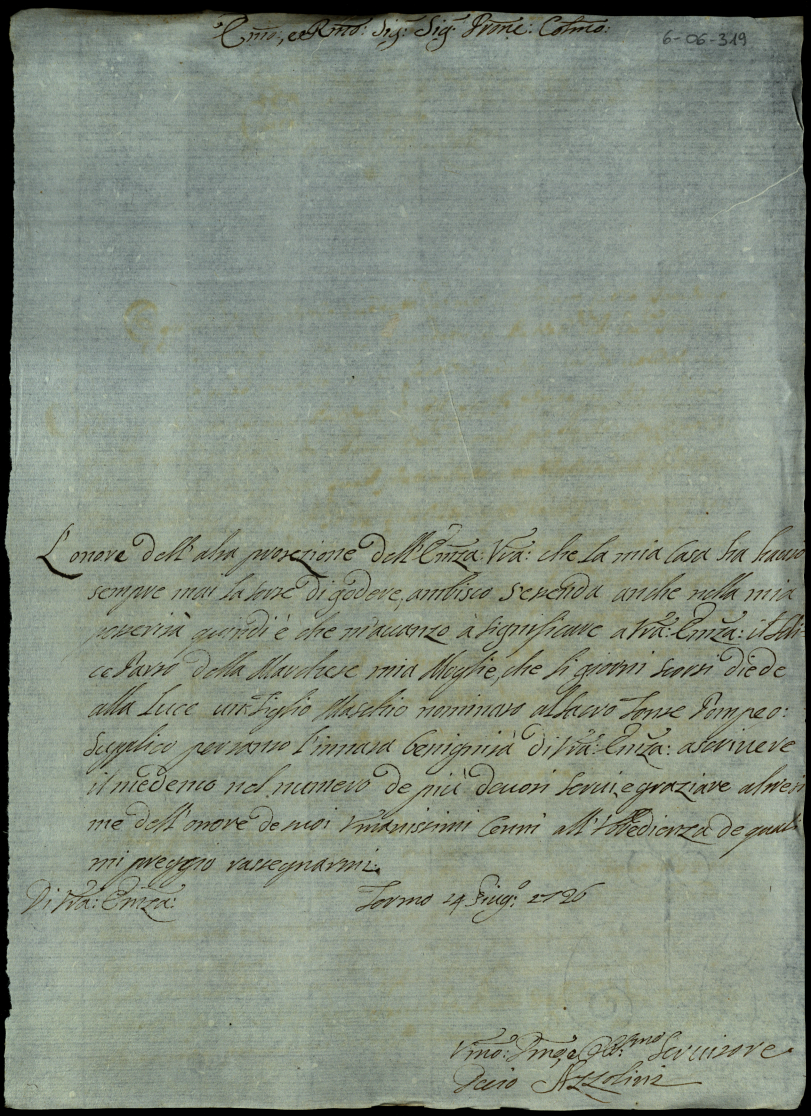 Emo, e Rmo: Sig: Sig: Prone: Colmo:
6-06-319
L'onore dell'alta protezione dell'Emza: Vra: che la mia Casa ha hauto
sempre mai la sorte di godere, ambisco s'estenda anche nella mia
posterità quindi è che m'auanzo à significare a Vra: Emza: il Feli
ce Parto della Marchese mia Moglie, che li giorni scorsi diede
alla Luce un Figlio Maschio nominato al Sacro Fonte Pompeo:
Supplico pertanto l'innata benignità di Vra: Emza: ascriuere
il medemo nel numero de più deuoti Serui, e graziare altresi
me dell'onore de suoi Vmanissimi Cenni all'Vbbedienza de quali
mi preggio rassegnarmi.
Di Vra: Emza:
Fermo 14 Giug:o 1726
Vmo: Dmo, e Obmo Seruitore
Decio Azzolini